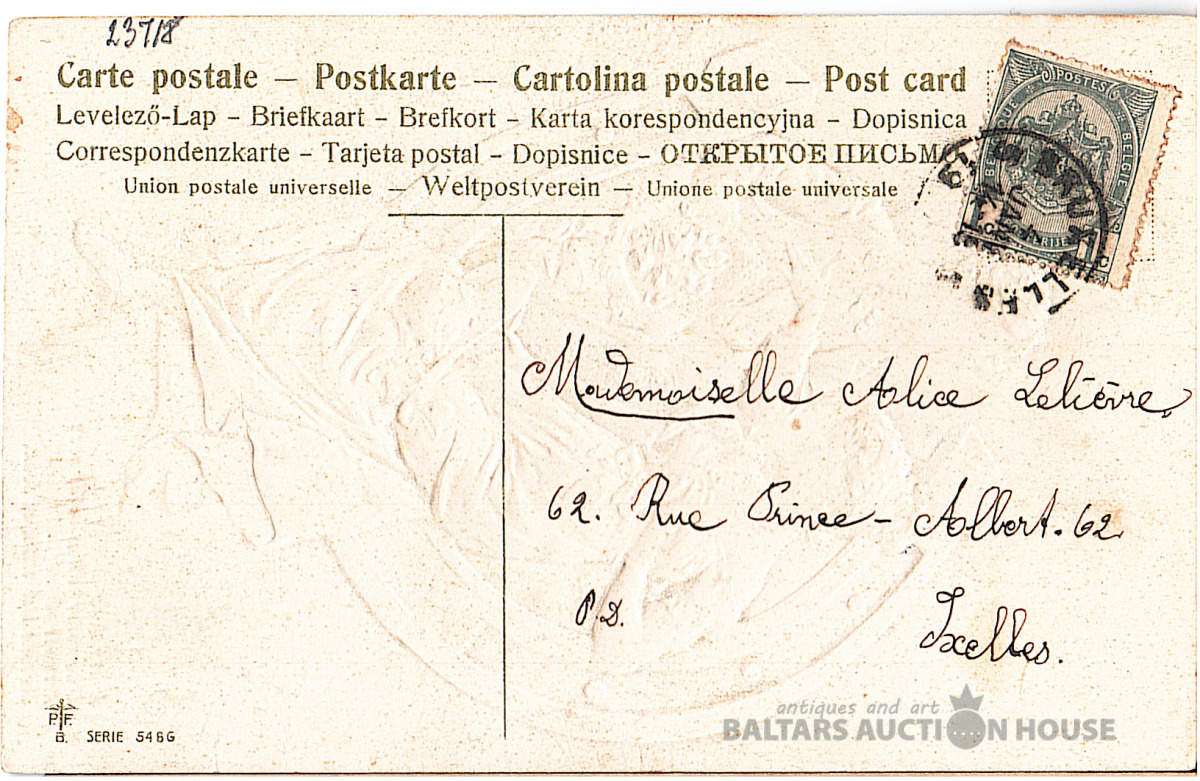 237/8
Carte postale – Postkarte – Cartolina postale – Post card
Levelező-Lap – Briefkaart – Brefkort – Karta korespondencyjna – Dopisnica
Correspondenzkarte – Tarjeta postal – Dopisnice – ОТКРЫТОЕ ПИСЬМО
Union postale universelle – Weltpostverein – Unione postale universale
POSTES
BELGIE
Mademoiselle Alice Lelièvre,
62. Rue Prince-Albert. 62
P.D.
Ixelles.
P.F.
B. SERIE 5466
antiques and art
BALTARS AUCTION HOUSE